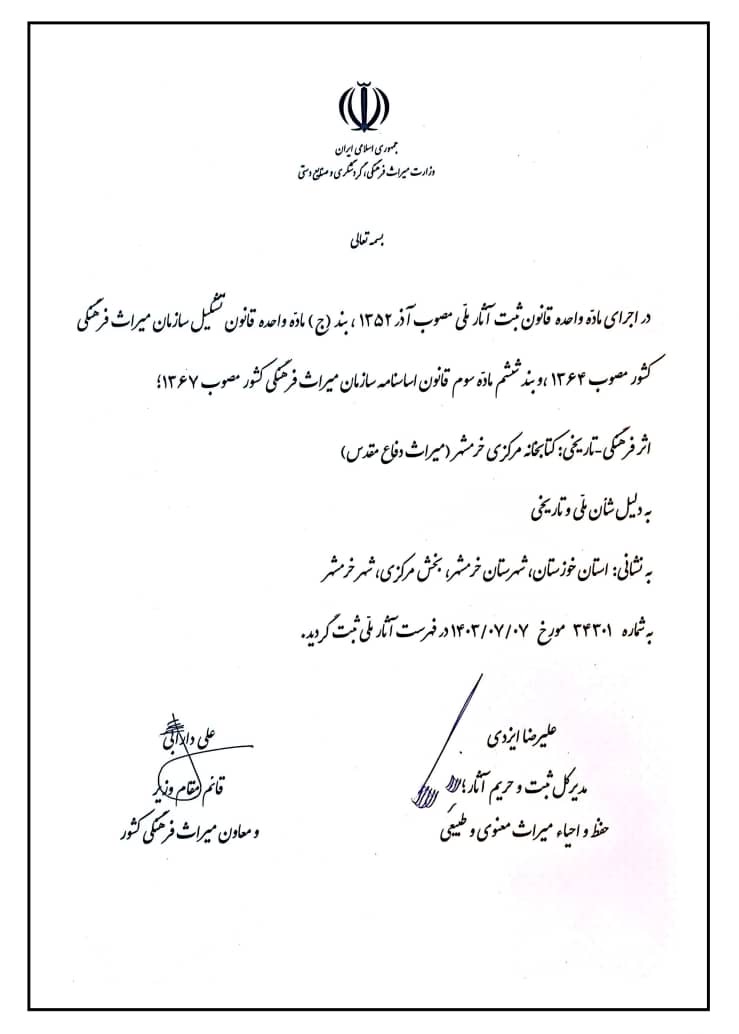 جمهوری اسلامی ایران
وزارت میراث فرهنگی، گردشگری و صنایع دستی
بسمه تعالی
در اجرای مادّه واحده قانون ثبت آثار ملّی مصوب آذر ۱۳۵۲، بند (ج) مادّه واحده قانون تشکیل سازمان میراث فرهنگی
کشور مصوب ۱۳۶۴، و بند ششم مادّه سوم قانون اساسنامه سازمان میراث فرهنگی کشور مصوب ۱۳۶۷؛
اثر فرهنگی-تاریخی: کتابخانه مرکزی خرمشهر (میراث دفاع مقدس)
به دلیل شأن ملّی و تاریخی
به نشانی: استان خوزستان، شهرستان خرمشهر، بخش مرکزی، شهر خرمشهر
به شماره ۳۴۳۰۱ مورخ ۱۴۰۳/۰۷/۰۷ در فهرست آثار ملّی ثبت گردید.
علیرضا ایزدی
مدیرکل ثبت و حریم آثار؛
حفظ و احیاء میراث معنوی و طبیعی
علی دارابی
قائم مقام وزیر
و معاون میراث فرهنگی کشور